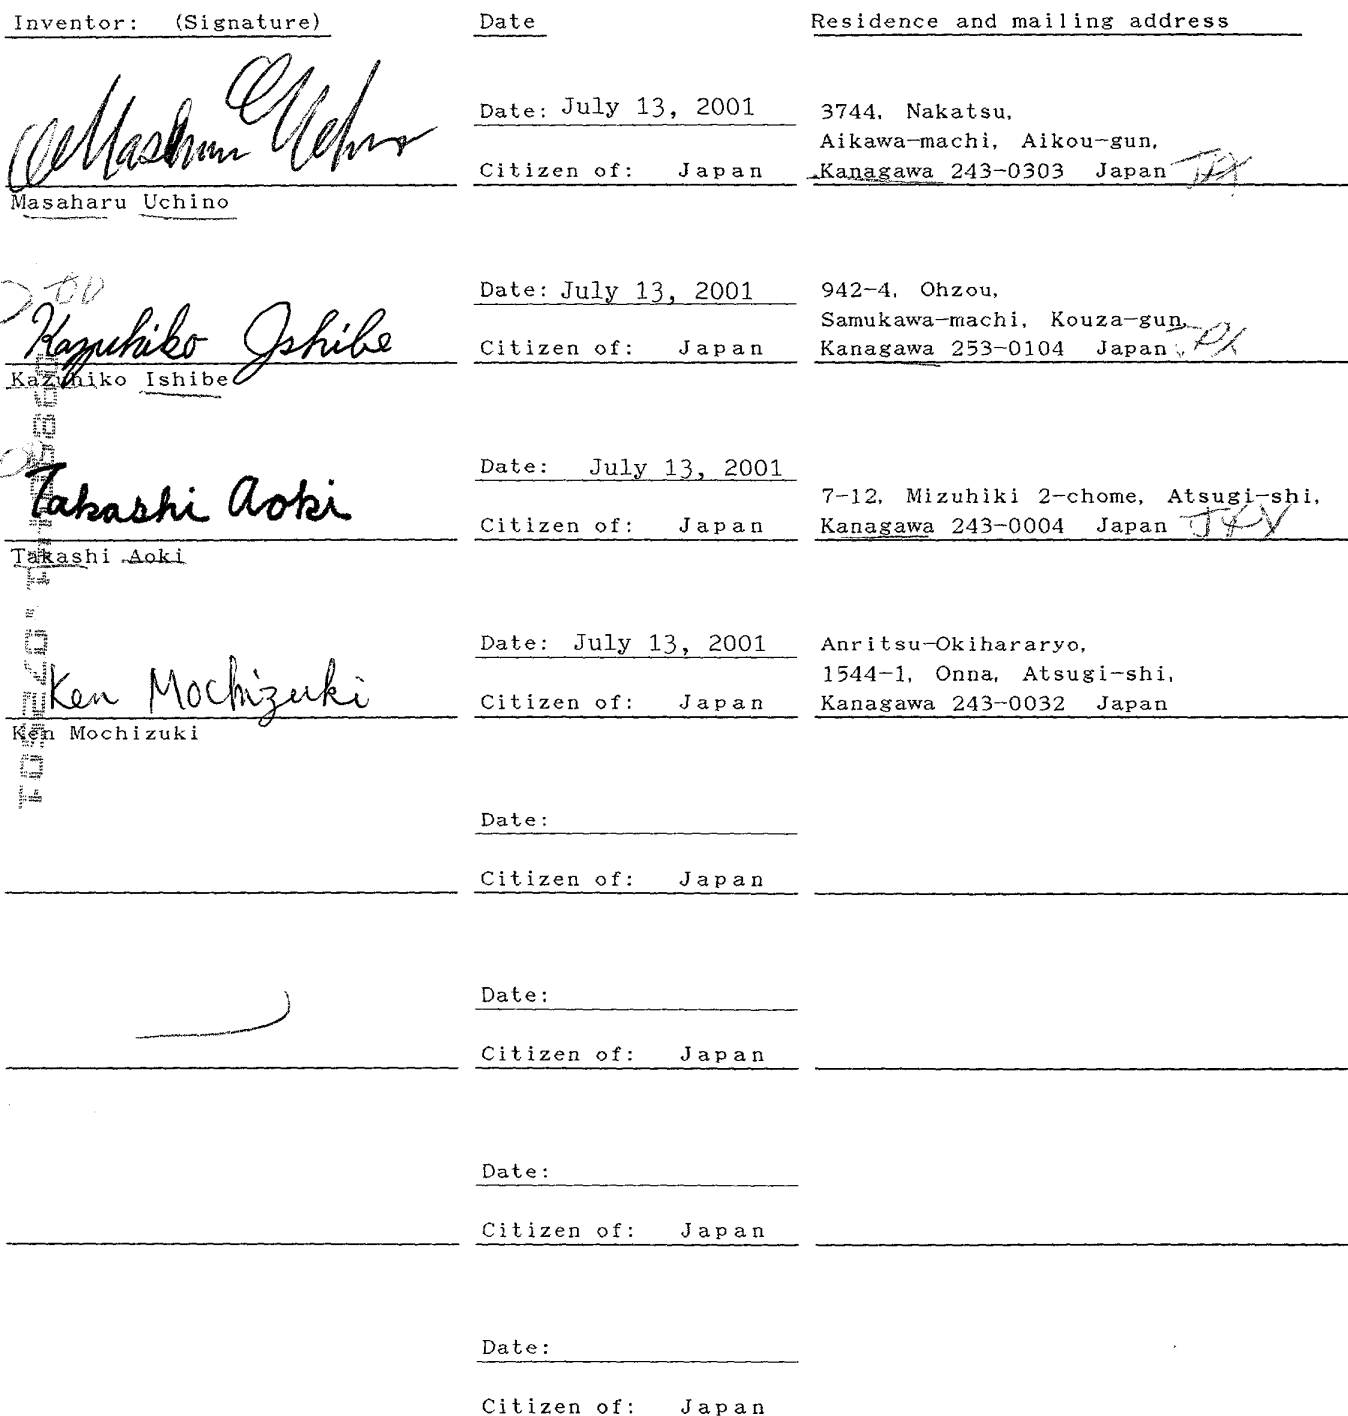 Inventor: (Signature) Date Residence and mailing address
Masaharu Uchino
Date: July 13, 2001
Citizen of: Japan
3744, Nakatsu,
Aikawa-machi, Aikou-gun,
Kanagawa 243-0303 Japan
Masaharu Uchino
Kazuhiko Ishibe
Date: July 13, 2001
Citizen of: Japan
942-4, Ohzou,
Samukawa-machi, Kouza-gun,
Kanagawa 253-0104 Japan
Kazuhiko Ishibe
Takashi Aoki
Date: July 13, 2001
Citizen of: Japan
7-12, Mizuhiki 2-chome, Atsugi-shi,
Kanagawa 243-0004 Japan
Takashi Aoki
Ken Mochizuki
Date: July 13, 2001
Citizen of: Japan
Anritsu-Okihararyo,
1544-1, Onna, Atsugi-shi,
Kanagawa 243-0032 Japan
Ken Mochizuki
Date:
Citizen of: Japan
Date:
Citizen of: Japan
Date:
Citizen of: Japan
Date:
Citizen of: Japan